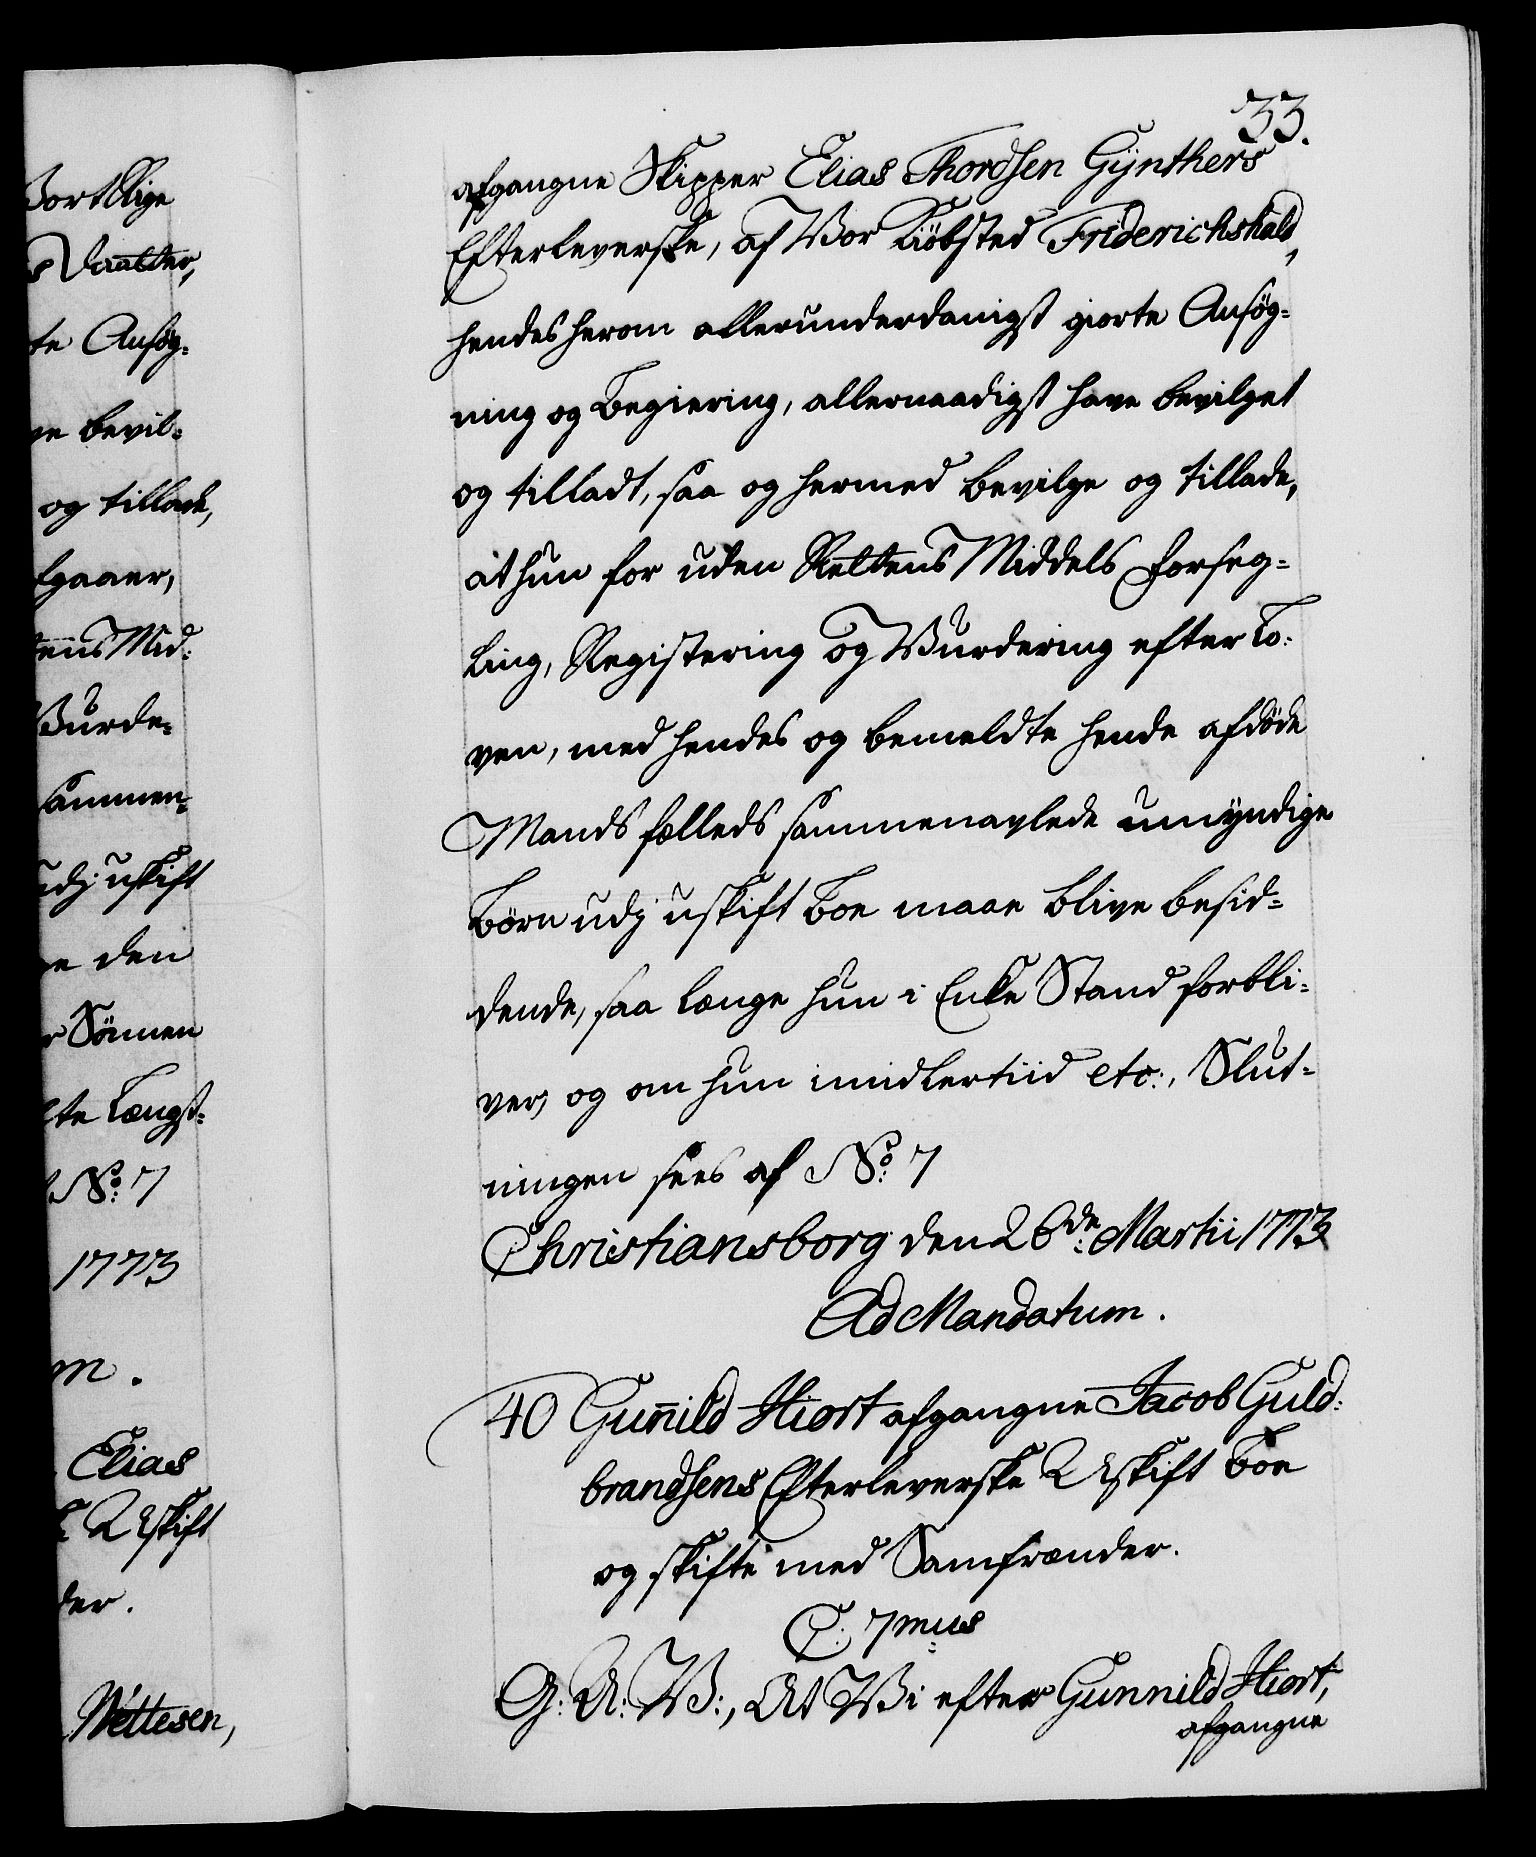 33.
afgangne Skipper Elias Thordsen Gÿnthers
Efterleverske, af Vor Kiöbsted Friderichshald,
hendes herom allerunderdanigst giorte Ansög-
ning og Begiering, allernaadigst have bevilget
og tilladt, saa og hermed bevilge og tillade,
at hun for uden Rettens Middels Forseg-
ling, Registering og Vurdering efter Lo-
ven, med hendes og bemeldte hende afdöde
Mands fælleds sammenavlede umÿndige
Börn udj uskift Boe maae blive besid-
dende, saa længe hun i Enke Stand forbli-
ver, og om hun imidlertiid etc:, Slut-
ningen sees af No: 7
Christiansborg den 26de: Martii 1773
Ad Mandatum.
40 Gun̄ild Hiort afgangne Jacob Guld-
brandsens Efterleverske Uskift Boe
og skifte med Samfrænder.
C: 7mus
G: A: V:, At Vi efter Gunnild Hiort,
afgangne
Vaatter,
te Ansög-
ve bevil-
og tillade,
fgaaer,
Mid-
Vurde-
sammen-
udj uskift
ge den
r Sönnen
te Længst-
No: 7
1773
m.
Elias
Uskift
der.
Wettesen,